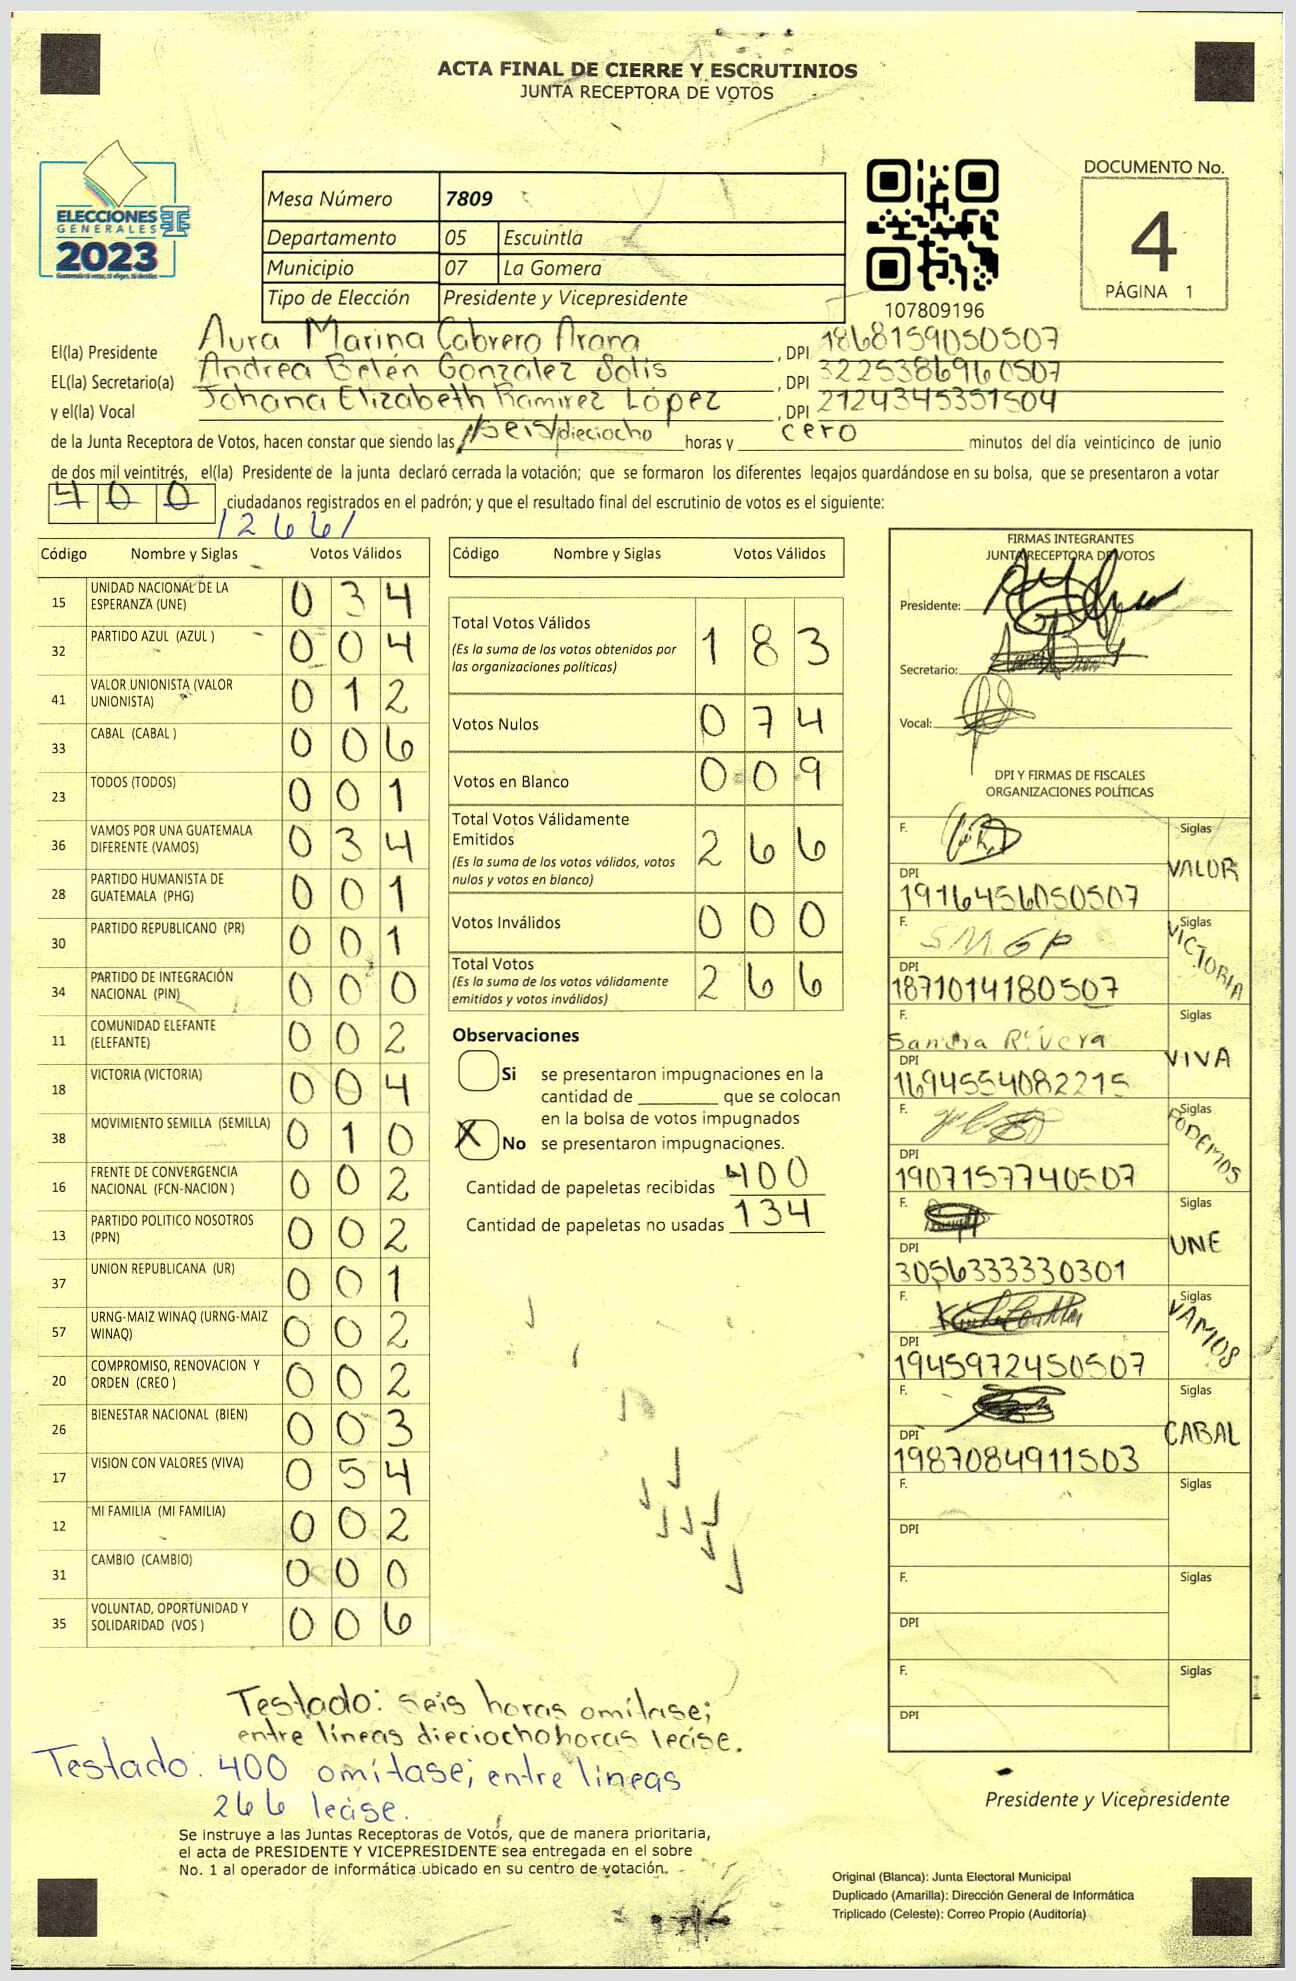 ACTA FINAL DE CIERRE Y ESCRUTINIOS
JUNTA RECEPTORA DE VOTOS
ELECCIONES
GENERALES
2023
Mesa Número 7809
Departamento 05 Escuintla
Municipio 07 La Gomera
Tipo de Elección Presidente y Vicepresidente
107809196
DOCUMENTO No.
4
PÁGINA 1
El(la) Presidente Aura Marina Cabrera Arana, DPI 1868159050507
EL(la) Secretario(a) Andrea Belén Gonzalez Solis, DPI 3225386960507
y el(la) Vocal Johana Elizabeth Ramirez López, DPI 2124345351504
de la Junta Receptora de Votos, hacen constar que siendo las //seis/dieciocho horas y cero minutos del día veinticinco de junio
de dos mil veintitrés, el(la) Presidente de la junta declaró cerrada la votación; que se formaron los diferentes legajos guardándose en su bolsa, que se presentaron a votar
400 ciudadanos registrados en el padrón; y que el resultado final del escrutinio de votos es el siguiente:
/266/
Código Nombre y Siglas Votos Válidos
15 UNIDAD NACIONAL DE LA ESPERANZA (UNE) 034
32 PARTIDO AZUL (AZUL ) 004
41 VALOR UNIONISTA (VALOR UNIONISTA) 012
33 CABAL (CABAL ) 006
23 TODOS (TODOS) 001
36 VAMOS POR UNA GUATEMALA DIFERENTE (VAMOS) 034
28 PARTIDO HUMANISTA DE GUATEMALA (PHG) 001
30 PARTIDO REPUBLICANO (PR) 001
34 PARTIDO DE INTEGRACIÓN NACIONAL (PIN) 000
11 COMUNIDAD ELEFANTE (ELEFANTE) 002
18 VICTORIA (VICTORIA) 004
38 MOVIMIENTO SEMILLA (SEMILLA) 010
16 FRENTE DE CONVERGENCIA NACIONAL (FCN-NACION ) 002
13 PARTIDO POLITICO NOSOTROS (PPN) 002
37 UNION REPUBLICANA (UR) 001
57 URNG-MAIZ WINAQ (URNG-MAIZ WINAQ) 002
20 COMPROMISO, RENOVACION Y ORDEN (CREO ) 002
26 BIENESTAR NACIONAL (BIEN) 003
17 VISION CON VALORES (VIVA) 054
12 MI FAMILIA (MI FAMILIA) 002
31 CAMBIO (CAMBIO) 000
35 VOLUNTAD, OPORTUNIDAD Y SOLIDARIDAD (VOS ) 006
Código Nombre y Siglas Votos Válidos
Total Votos Válidos 183
(Es la suma de los votos obtenidos por
las organizaciones políticas)
Votos Nulos 074
Votos en Blanco 009
Total Votos Válidamente
Emitidos 266
(Es la suma de los votos válidos, votos
nulos y votos en blanco)
Votos Inválidos 000
Total Votos 266
(Es la suma de los votos válidamente
emitidos y votos inválidos)
Observaciones
Si se presentaron impugnaciones en la
cantidad de ________ que se colocan
en la bolsa de votos impugnados
X No se presentaron impugnaciones.
Cantidad de papeletas recibidas 400
Cantidad de papeletas no usadas 134
FIRMAS INTEGRANTES
JUNTA RECEPTORA DE VOTOS
Presidente:
Secretario:
Vocal:
DPI Y FIRMAS DE FISCALES
ORGANIZACIONES POLÍTICAS
F. Siglas VALOR
DPI 1916456050507
F. SMGP Siglas VICTORIA
DPI 1871014180507
F. Sandra Rivera Siglas VIVA
DPI 1694554082215
F. Siglas PODEMOS
DPI 1907157740507
F. Siglas UNE
DPI 3056333330301
F. Siglas VAMOS
DPI 1945972450507
F. Siglas CABAL
DPI 1987084911503
F. Siglas
DPI
F. Siglas
DPI
F. Siglas
DPI
Testado: seis horas omítase;
entre líneas dieciocho horas leáse.
Testado: 400 omítase; entre líneas
266 leáse.
Presidente y Vicepresidente
Se instruye a las Juntas Receptoras de Votos, que de manera prioritaria,
el acta de PRESIDENTE Y VICEPRESIDENTE sea entregada en el sobre
No. 1 al operador de informática ubicado en su centro de votación.
Original (Blanca): Junta Electoral Municipal
Duplicado (Amarilla): Dirección General de Informática
Triplicado (Celeste): Correo Propio (Auditoría)